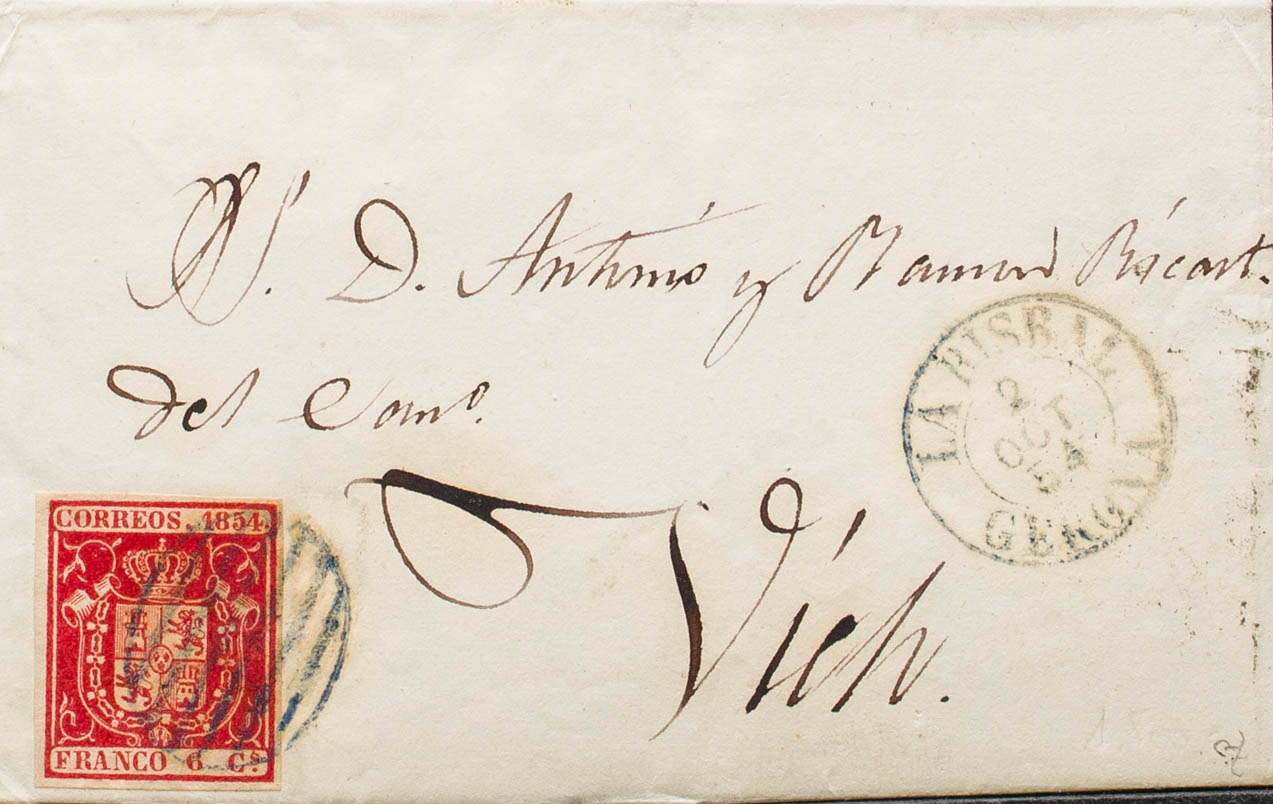 S. D. Antonio y Ramon Ricart.
del Comº.
Vich.
LA BISBAL
2
OCT
54
GERONA
CORREOS 1854
FRANCO 6 Cs.